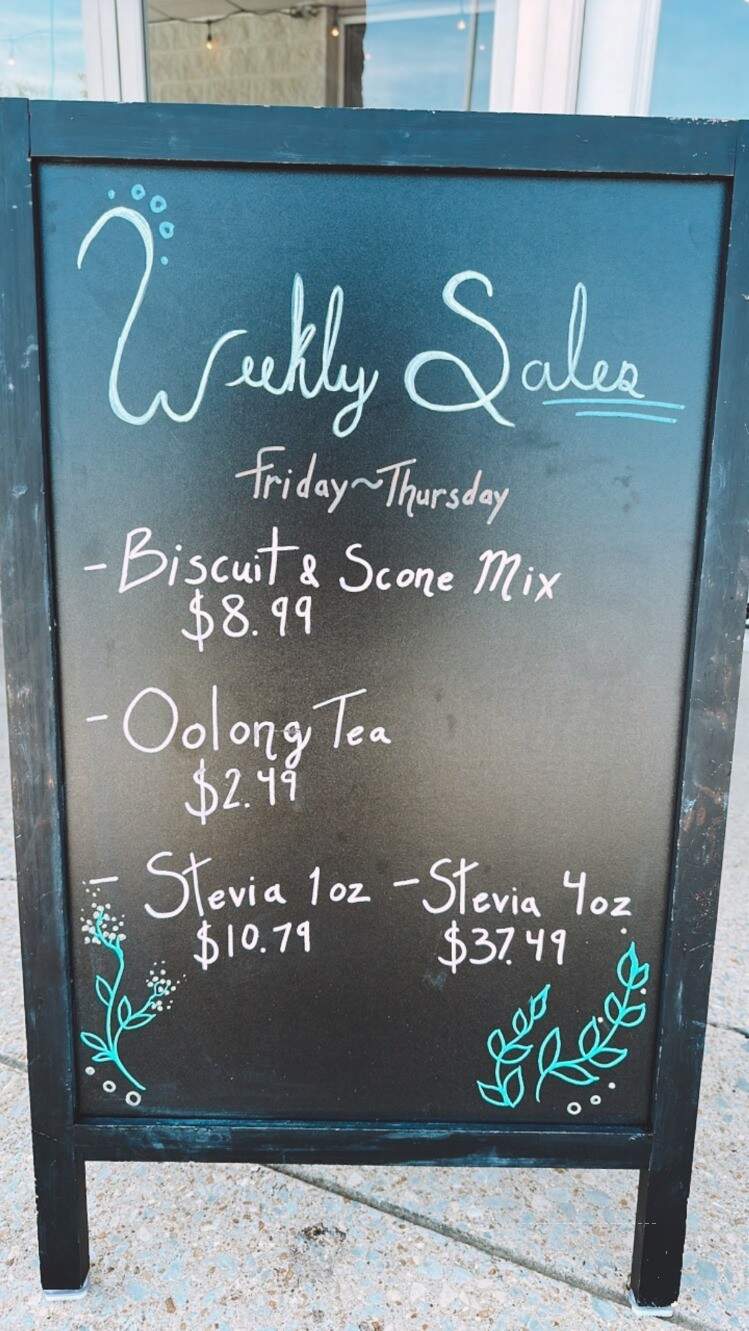 Weekly Sales
Friday~Thursday
- Biscuit & Scone Mix
$8.99
- Oolong Tea
$2.49
- Stevia 1oz - Stevia 4oz
$10.79 $37.49